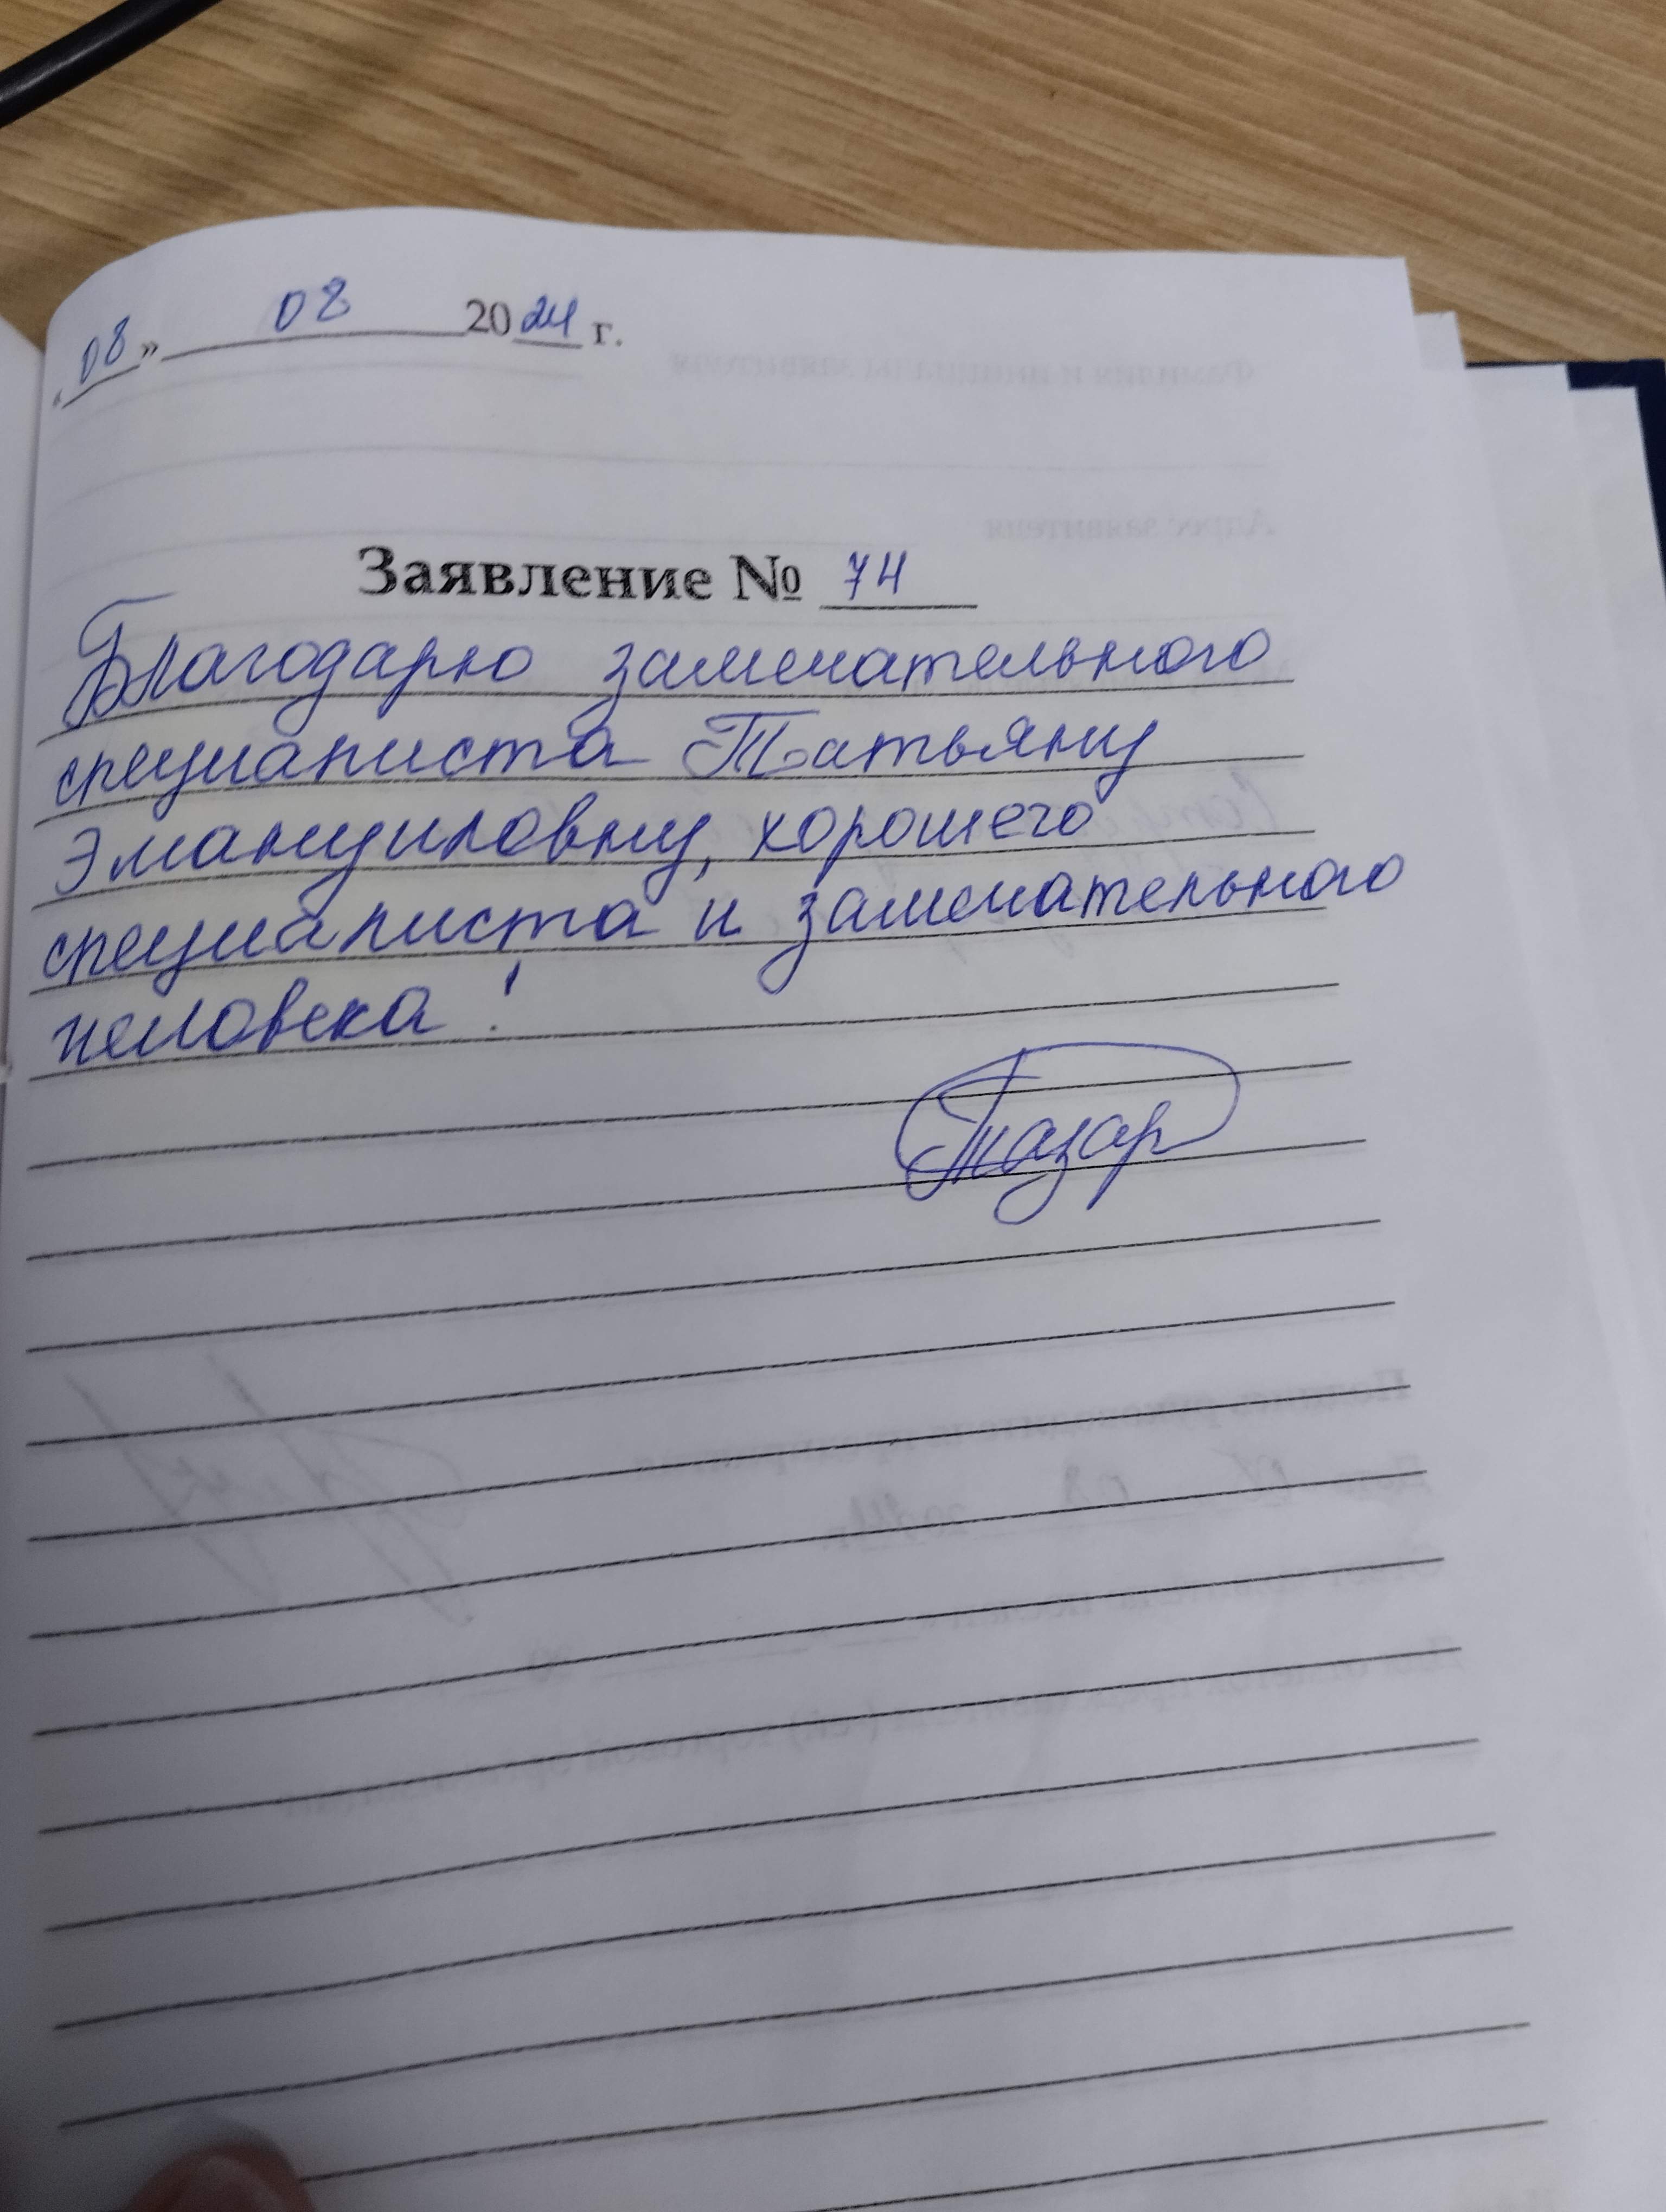 «08» 08 2024 г.
Заявление № 74
Благодарю замечательного
специалиста Татьяну
Эмануиловну, хорошего
специалиста и замечательного
человека!